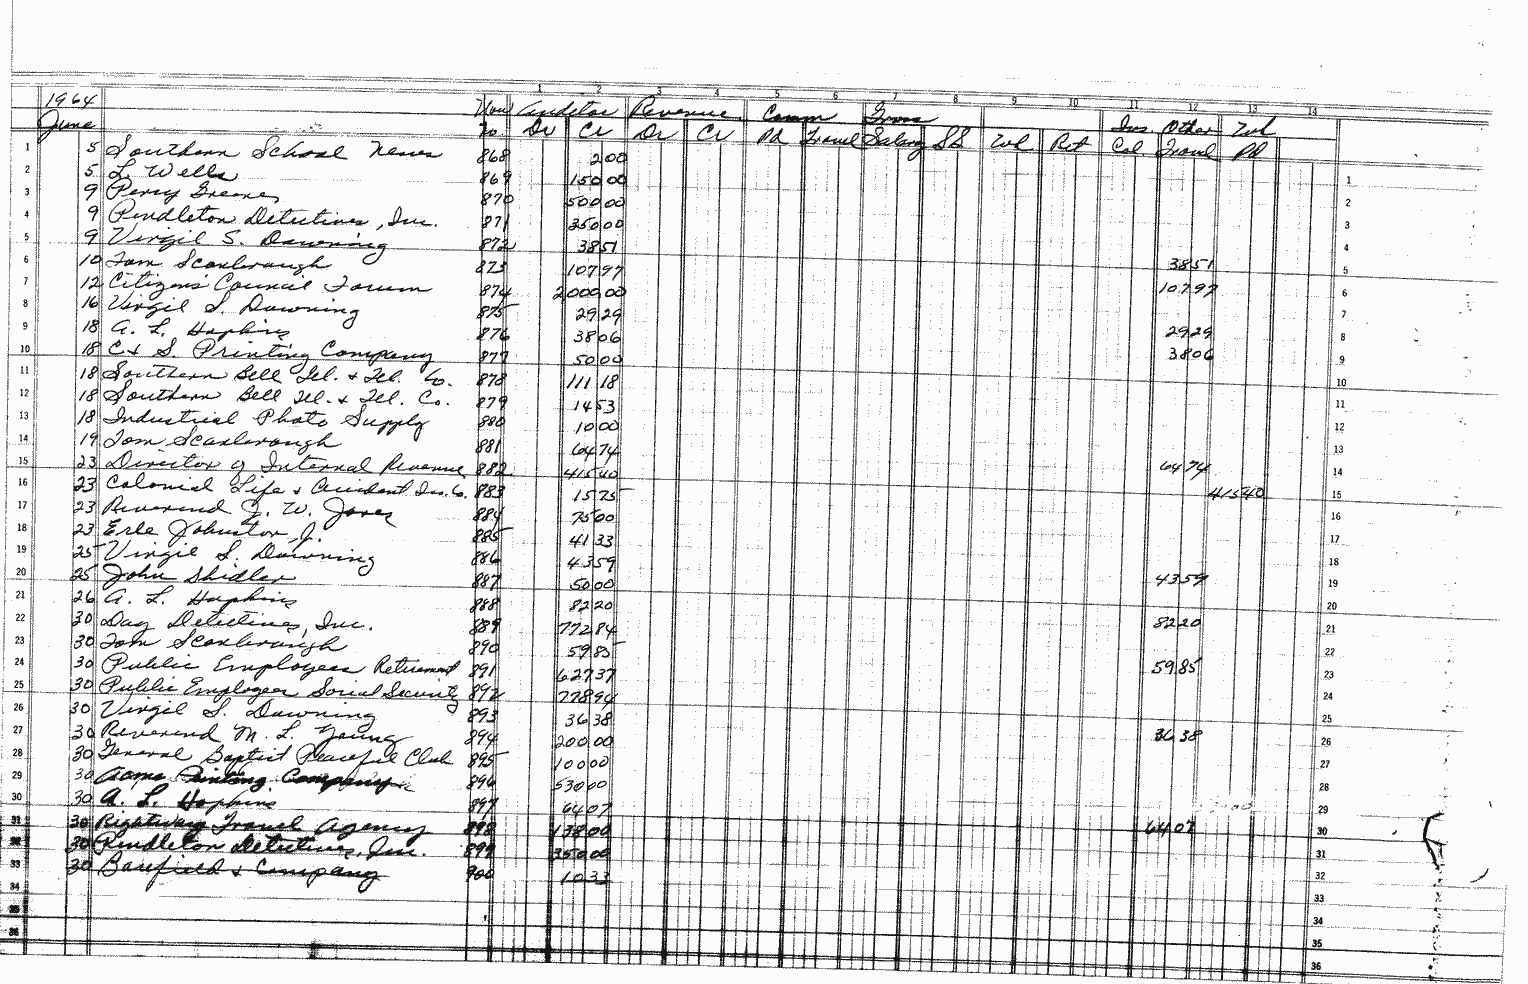 1 2 3 4 5 6 7 8 9 10 11 12 13 14
1964 Vou Auditor Revenue Comm Gross Ins. Other Wh
June No Dr Cr Dr Cr Pd Travel Salary SS Wh Ret Col Travel Pd
1 5 Southern School News 868 2 00 1
2 5 L. Wells 869 150 00 2
3 9 Percy Greene 870 500 00 3
4 9 Pendleton Detectives, Inc. 871 350 00 4
5 9 Virgil S. Downing 872 38 51 38 51 5
6 10 Tom Scarbrough 873 107 97 107 97 6
7 12 Citizens Council Forum 874 2,000 00 7
8 16 Virgil S. Downing 875 29 29 29 29 8
9 18 A. L. Hopkins 876 38 06 38 06 9
10 18 C & S. Printing Company 877 50 00 10
11 18 Southern Bell Tel. & Tel. Co. 878 111 18 11
12 18 Southern Bell Tel. & Tel. Co. 879 14 53 12
13 18 Industrial Photo Supply 880 10 00 13
14 19 Tom Scarbrough 881 64 74 64 74 14
15 23 Director of Internal Revenue 882 415 40 415 40 15
16 23 Colonial Life & Accident Ins. Co. 883 15 75 16
17 23 Reverend J. W. Jones 884 75 00 17
18 23 Erle Johnston, Jr. 885 41 33 18
19 25 Virgil S. Downing 886 43 59 43 59 19
20 25 John Shidler 887 50 00 20
21 26 A. L. Hopkins 888 82 20 82 20 21
22 30 Day Detectives, Inc. 889 772 84 22
23 30 Tom Scarbrough 890 59 85 59 85 23
24 30 Public Employees Retirement 891 627 37 24
25 30 Public Employees Social Security 892 778 94 25
26 30 Virgil S. Downing 893 36 38 36 38 26
27 30 Reverend M. L. Young 894 200 00 27
28 30 General Baptist Peaceful Club 895 100 00 28
29 30 Acme Printing Company 896 530 00 29
30 30 A. L. Hopkins 897 64 07 64 07 30
31 30 Rightway Travel Agency 898 138 00 31
32 30 Pendleton Detectives, Inc. 899 350 00 32
33 30 Barefield & Company 900 10 33 33
34 34
35 35
36 36